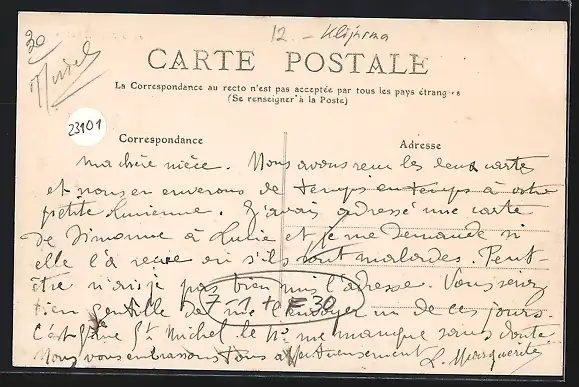 30
12 - Klijnma
CARTE POSTALE
La Correspondance au recto n'est pas acceptée par tous les pays étrangers
(Se renseigner à la Poste)
23101
Correspondance
Adresse
Ma chère nièce. Nous avons reçu les deux cartes
et nous en enverons de temps en temps à votre
petite Lucienne. J'avais adressé une carte
de Simonne à Lucie et je me demande si
elle l'a reçue ou s'ils sont malades. Peut-
être n'ai je pas bien mis l'adresse. Vous serez
bien gentille de me l'envoyer un de ces jours.
7-1+ = 30
C'est St Michel le No me manque sans doute
Nous vous embrassons tous affectueusement L. Marguerite